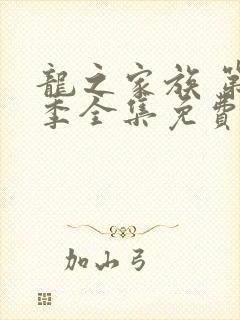 龍之家族 第
季全集免費
加山弓